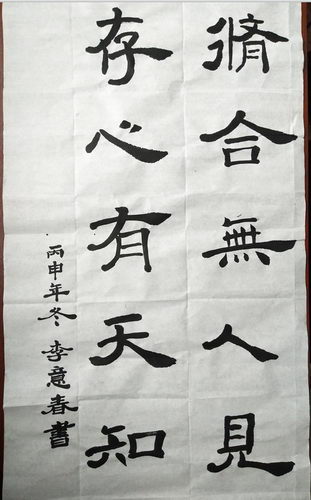 脩合無人見
存心有天知
丙申年冬 李意春書